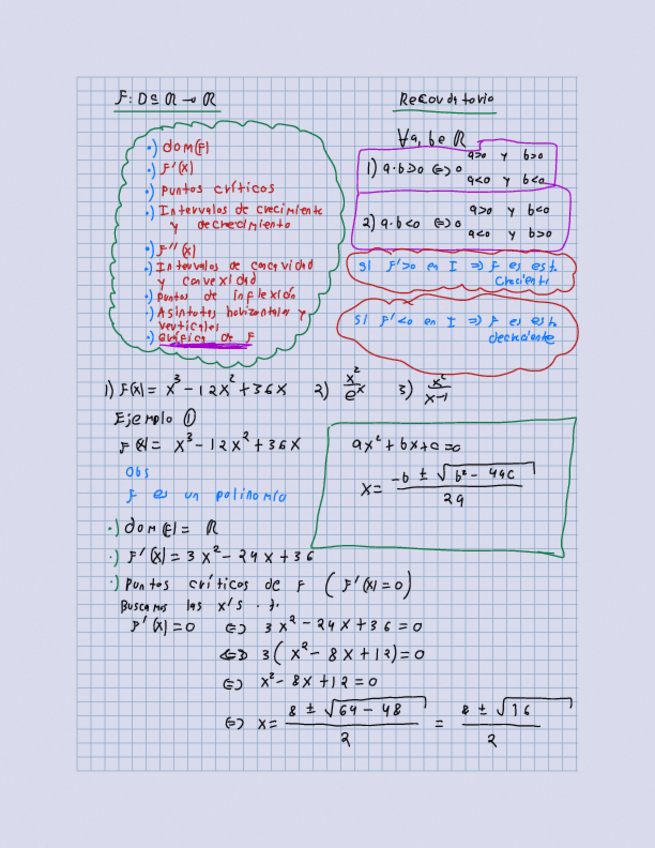 F: D ⊆ ℝ → ℝ
Recordatorio
∀a, b ∈ ℝ
•) dom(F)
•) F'(x)
•) Puntos críticos
•) Intervalos de crecimiento
y decrecimiento
•) F''(x)
•) Intervalos de concavidad
y convexidad
•) Puntos de inflexión
•) Asíntotas horizontales y
verticales
•) Gráfica de F
1) a·b>0 ⇔
a>0 y b>0
o
a<0 y b<0
2) a·b<0 ⇔
a>0 y b<0
o
a<0 y b>0
Si F'>0 en I ⇒ F es est.
creciente
Si F'<0 en I ⇒ F es est.
decreciente
1) F(x) = x³ - 12x² + 36x 2) x²/eˣ 3) x²/x-1
Ejemplo ①
F(x) = x³ - 12x² + 36x
Obs
F es un polinomio
ax² + bx + c = 0
x = -b ± √b² - 4ac / 2a
•) dom(F) = ℝ
•) F'(x) = 3x² - 24x + 36
•) Puntos críticos de F (F'(x) = 0)
Buscamos las x's
F'(x) = 0 ⇔ 3x² - 24x + 36 = 0
⇔ 3(x² - 8x + 12) = 0
⇔ x² - 8x + 12 = 0
⇔ x = 8 ± √64 - 48 / 2 = 8 ± √16 / 2